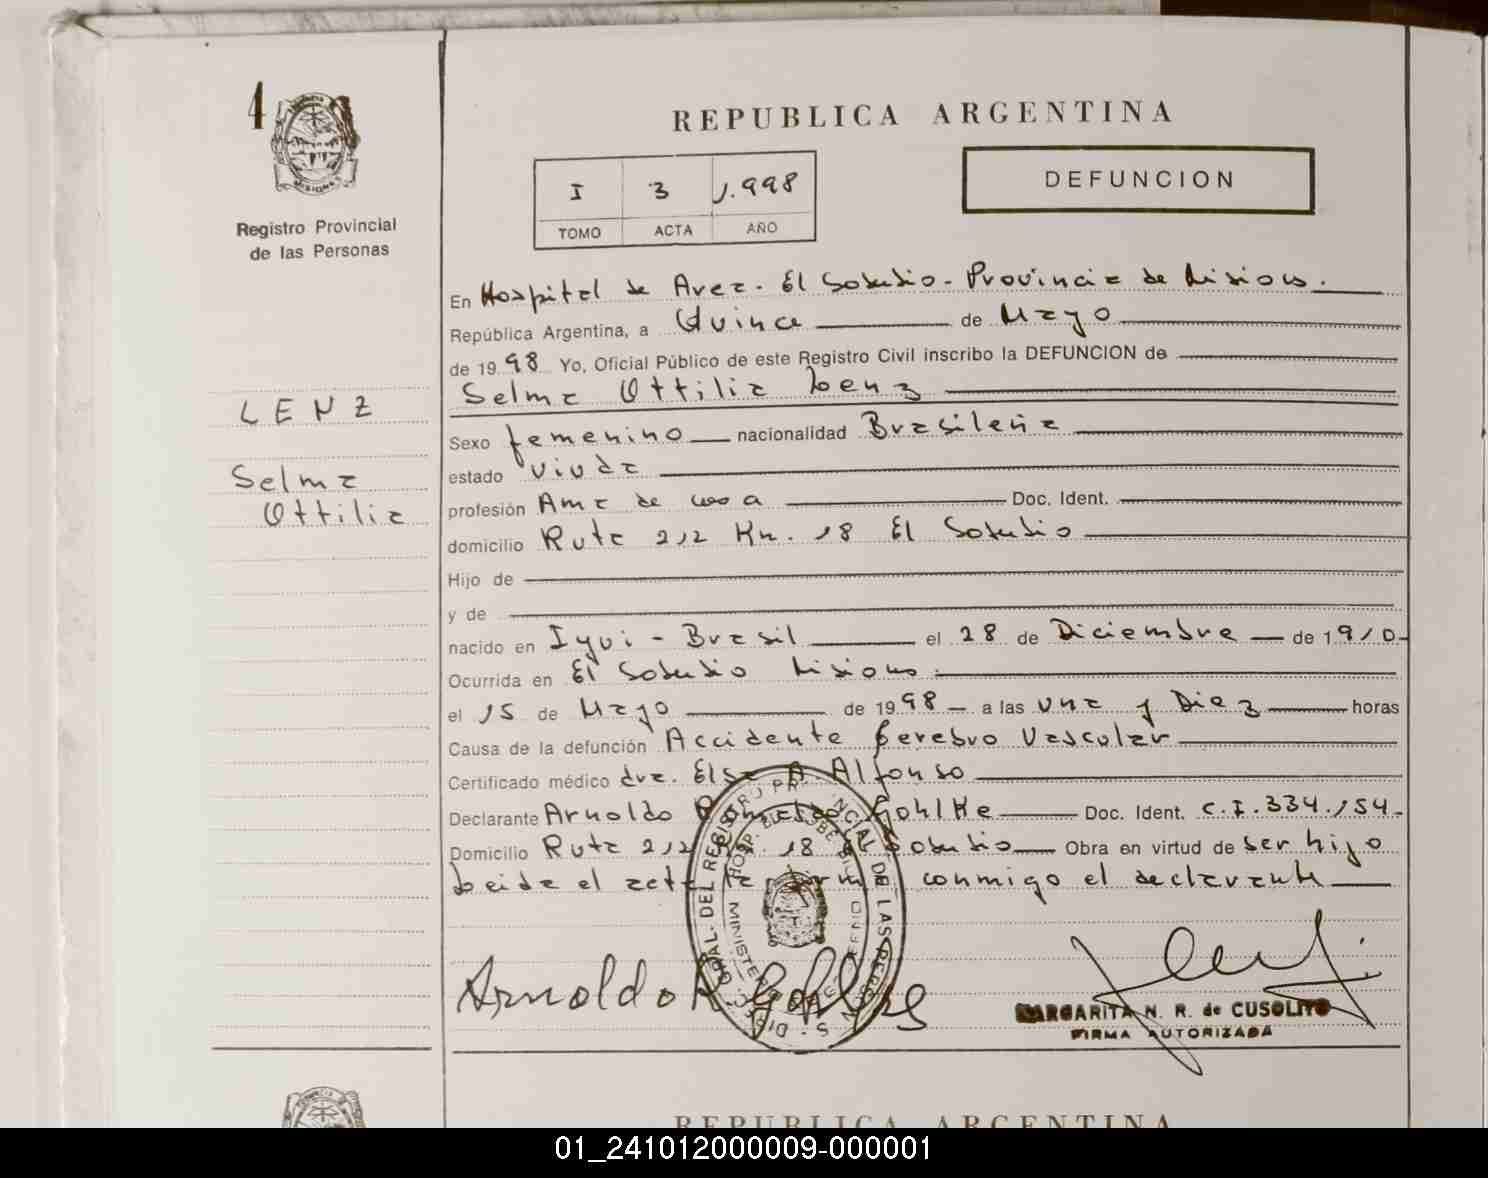 4
REPUBLICA ARGENTINA
I 3 1.998
TOMO ACTA AÑO
DEFUNCION
Registro Provincial
de las Personas
LENZ
Selma
Ottilia
En Hospital de Area. El Soberbio - Provincia de Misiones.
República Argentina, a Quince de Mayo
de 1998 Yo, Oficial Público de este Registro Civil inscribo la DEFUNCION de
Selma Ottilia Lenz
Sexo femenino nacionalidad Brasileña
estado viuda
profesión Ama de casa Doc. Ident.
domicilio Ruta 212 Km. 18 El Soberbio
Hijo de
y de
nacido en Iyui - Brasil el 28 de Diciembre de 1910
Ocurrida en El Soberbio Misiones.
el 15 de Mayo de 1998 a las una y Diez horas
Causa de la defunción Accidente Cerebro Vascular
Certificado médico dra. Elsa A. Alfonso
Declarante Arnoldo Gohlke Doc. Ident. C.I. 334.154.
Domicilio Ruta 212 Km. 18 El Soberbio Obra en virtud de ser hijo
Leida el acta la firma conmigo el declarante
Arnoldo R Gohlke
MARGARITA N. R. de CUSOLITO
FIRMA AUTORIZADA
REPUBLICA ARGENTINA
01_241012000009-000001